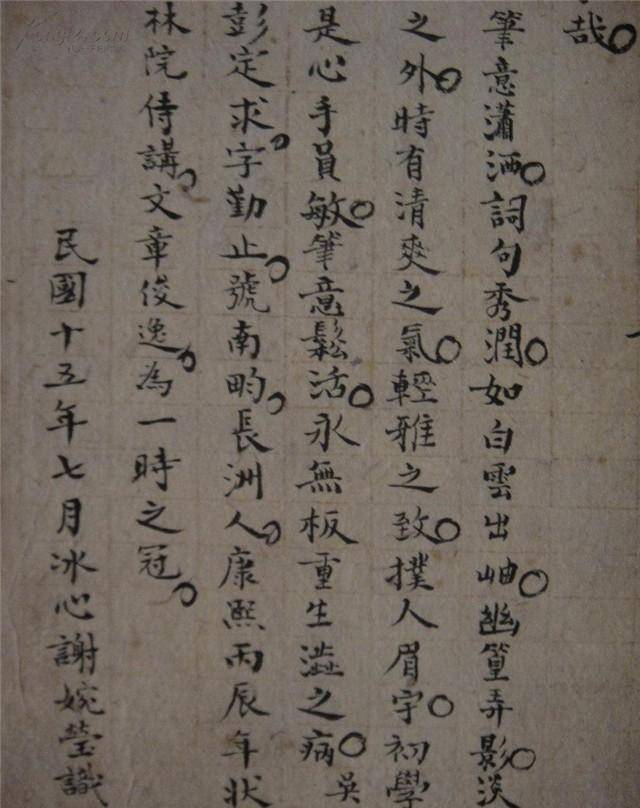 哉。
筆意瀟洒。詞句秀潤。如白雲出岫。幽篁弄影。淡
之外。時有清爽之氣。輕雅之致。撲人眉宇。初學
是。心手員敏。筆意鬆活。永無板重生澁之病。吳
彭定求。字勤止。號南畇。長洲人。康熙丙辰年狀
林院侍講。文章俊逸。為一時之冠。
民國十五年七月冰心謝婉瑩識